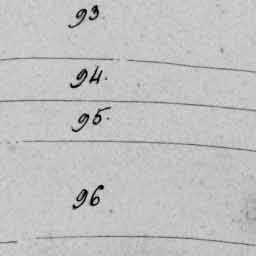 93
94.
95.
96